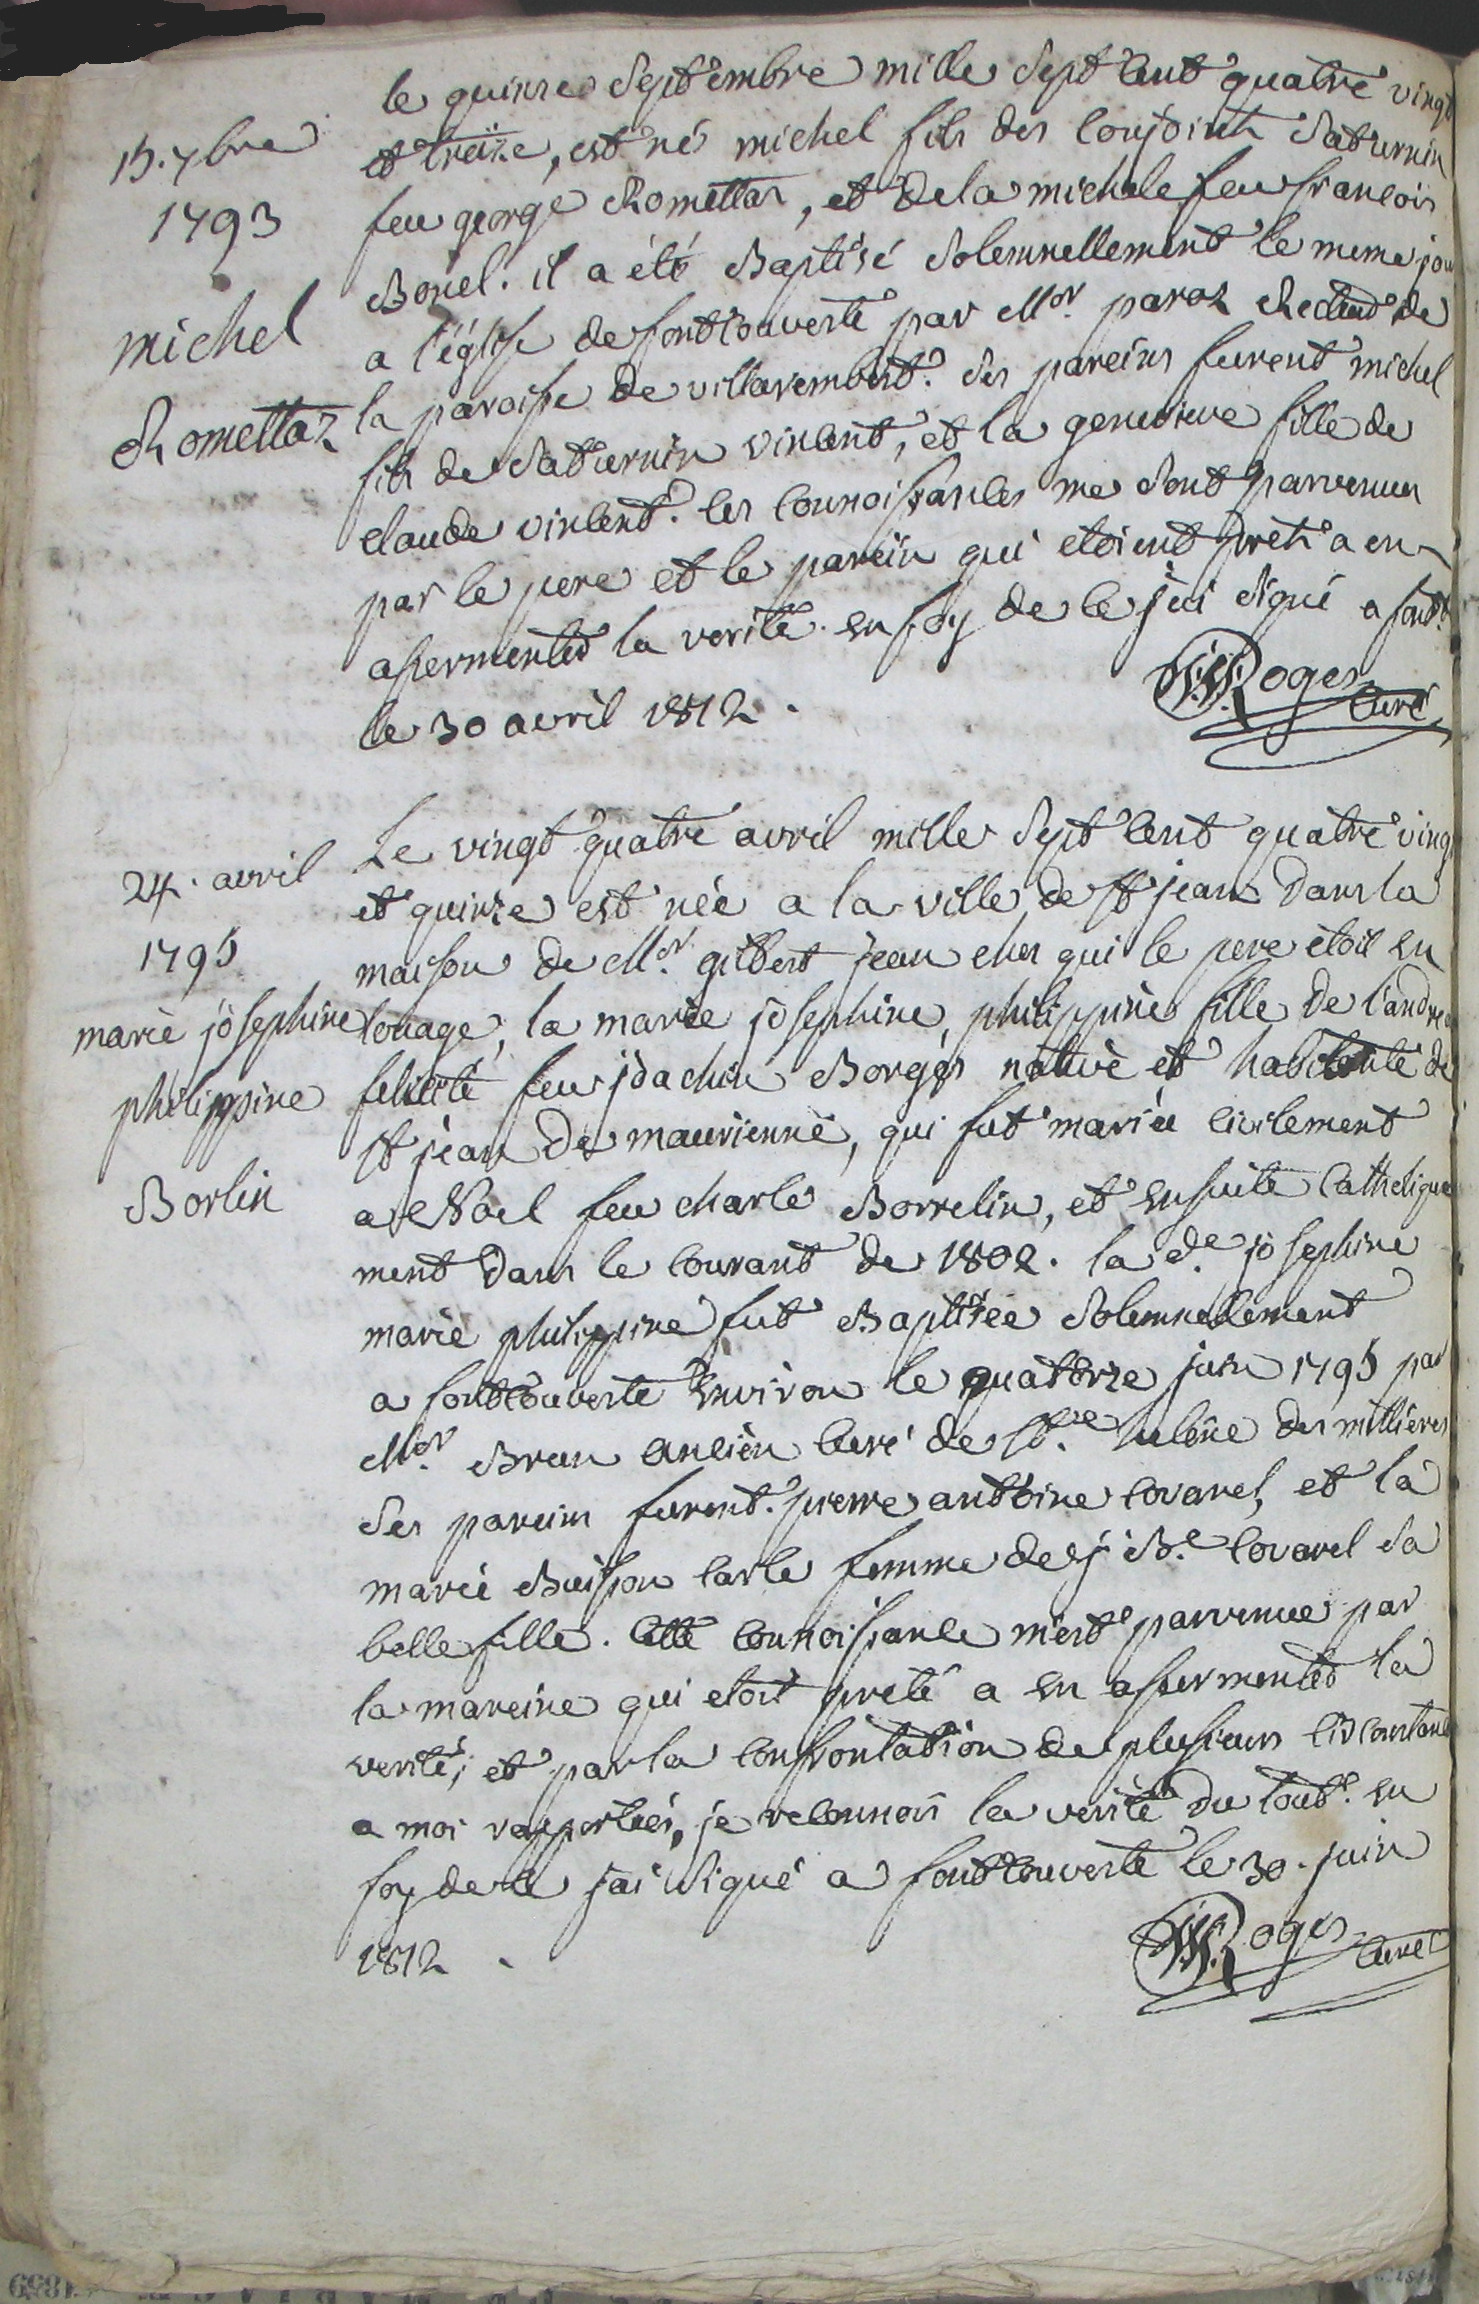 le quinze septembre mille sept cent quatre vingt
et treize, est né michel fils des conjoints Saturnin
feu george Romettaz, et de la michele feu francois
Bonel. il a été Baptisé solemnellement le meme jour
a l'église de fontcouverte par Mr. paraz Recteur de
la paroisse de villarembert. ses pareins furent michel
fils de saturnin vincent, et la genevieve fille de
claude vincent. les connoissances me sont parvenues
par le pere et le parein qui etoient prets a en
assermenter la verité. en foy de ce j'ai signé a font.
le 30 avril 1812.
Roges curé
15. 7bre
1793
michel
Romettaz
Le vingt quatre avril mille sept cent quatre vingt
et quinze est née a la ville de st jean dans la
maison de Mr. gilbert jean ches qui le pere étoit en
louage, la marie josephine, philippine fille de l'andrea
felicité feu joachin Borgés native et habitante de
st jean de maurienne, qui fut mariée civilement
a Noel feu charle Borrelin, et ensuite catholique
ment dans le courant de 1802. la de. josephine
marie philippine fut Baptisée solemnellement
a fontcouverte environ le quatorze juin 1795 par
Mr. Brun ancien curé de ste. helene des millieres
ses pareins furent. pierre antoine covarel, et la
marie Buisson carle femme de j Be. covarel sa
belle fille. cette connoissance m'est parvenue par
la mareine qui etoit prete a en assermenter la
verité, et par la confrontation de plusieurs circonstanc
a moi rapportées, je reconnois la verité du tout. en
foy de ce j'ai signé a fontcouverte le 30. juin
1812.
Roges curé
24. avril
1795
marie josephine
philippine
Borlin